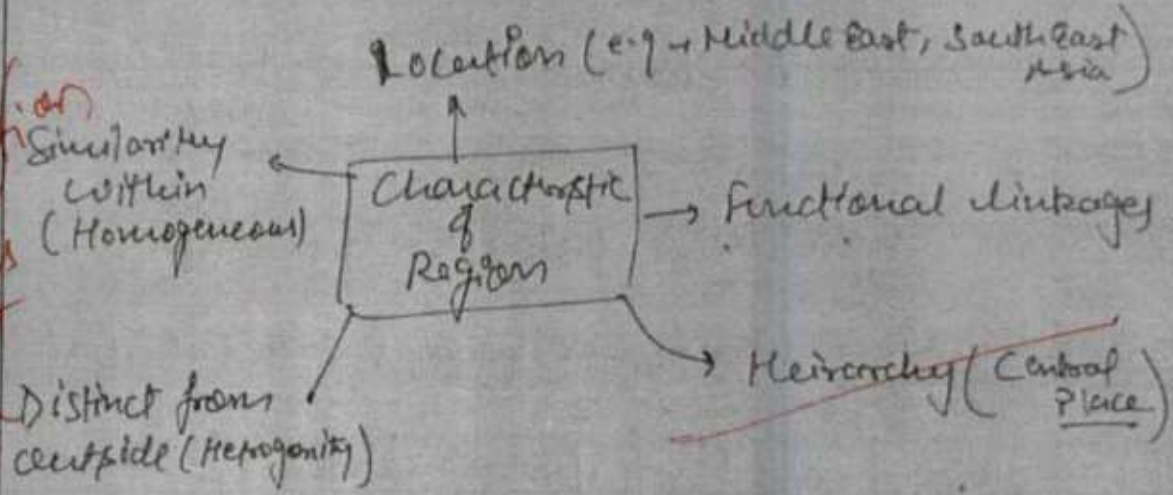 Location (e.g → Middle East, South East
Asia)
Similarity
within
(Homogeneous)
Characterstic
of
Regions
→ functional linkages
Heirarchy (Central
Place)
Distinct from
outside (Hetrogenity)